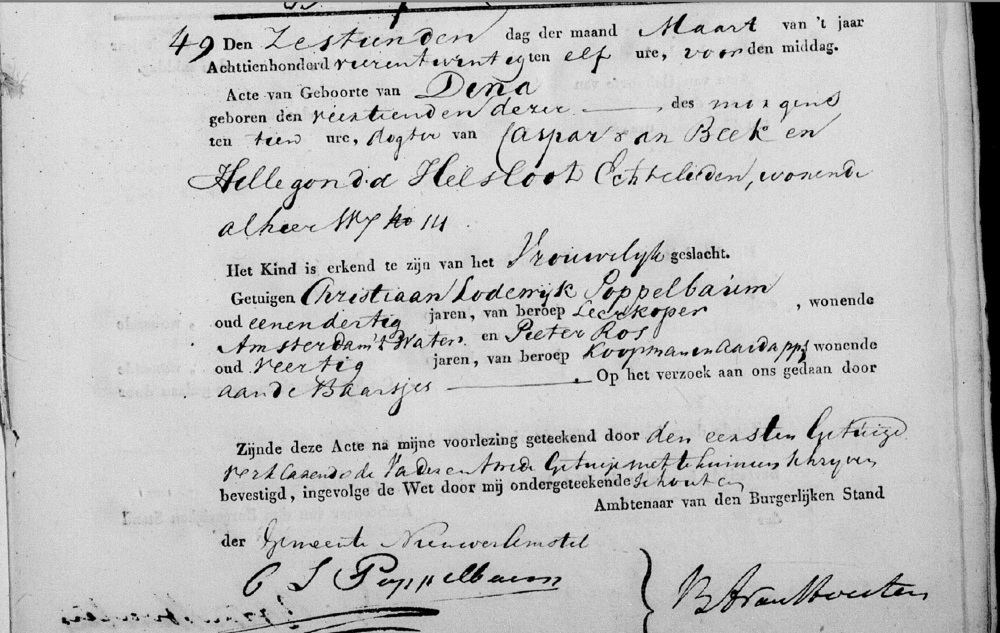 49 Den Zestienden dag der maand Maart van 't jaar
Achttienhonderd vierentwintig ten elf ure, voor den middag.
Acte van Geboorte van Dena
geboren den veertienden dezer des morgens
ten tien ure, dogter van Caspar van Beek en
Hillegonda Helsloot Echtelieden, wonende
alhier Wyk No 111
Het Kind is erkend te zijn van het Vrouwelyk geslacht.
Getuigen Christiaan Lodewijk Poppelbaum
oud eenendertig jaren, van beroep Leerkoper , wonende
Amsterdam 't Water en Pieter Ros
oud veertig jaren, van beroep Koopman in aardapps wonende
aan de Baarsjes . Op het verzoek aan ons gedaan door
Zijnde deze Acte na mijne voorlezing geteekend door den eersten Getuige
verklarende de Vader en twede Getuige niet te kunnen schryven
bevestigd, ingevolge de Wet door mij ondergeteekende Schout en
Ambtenaar van den Burgerlijken Stand
der Gemeente Nieuwer Amstel
C L Poppelbaum